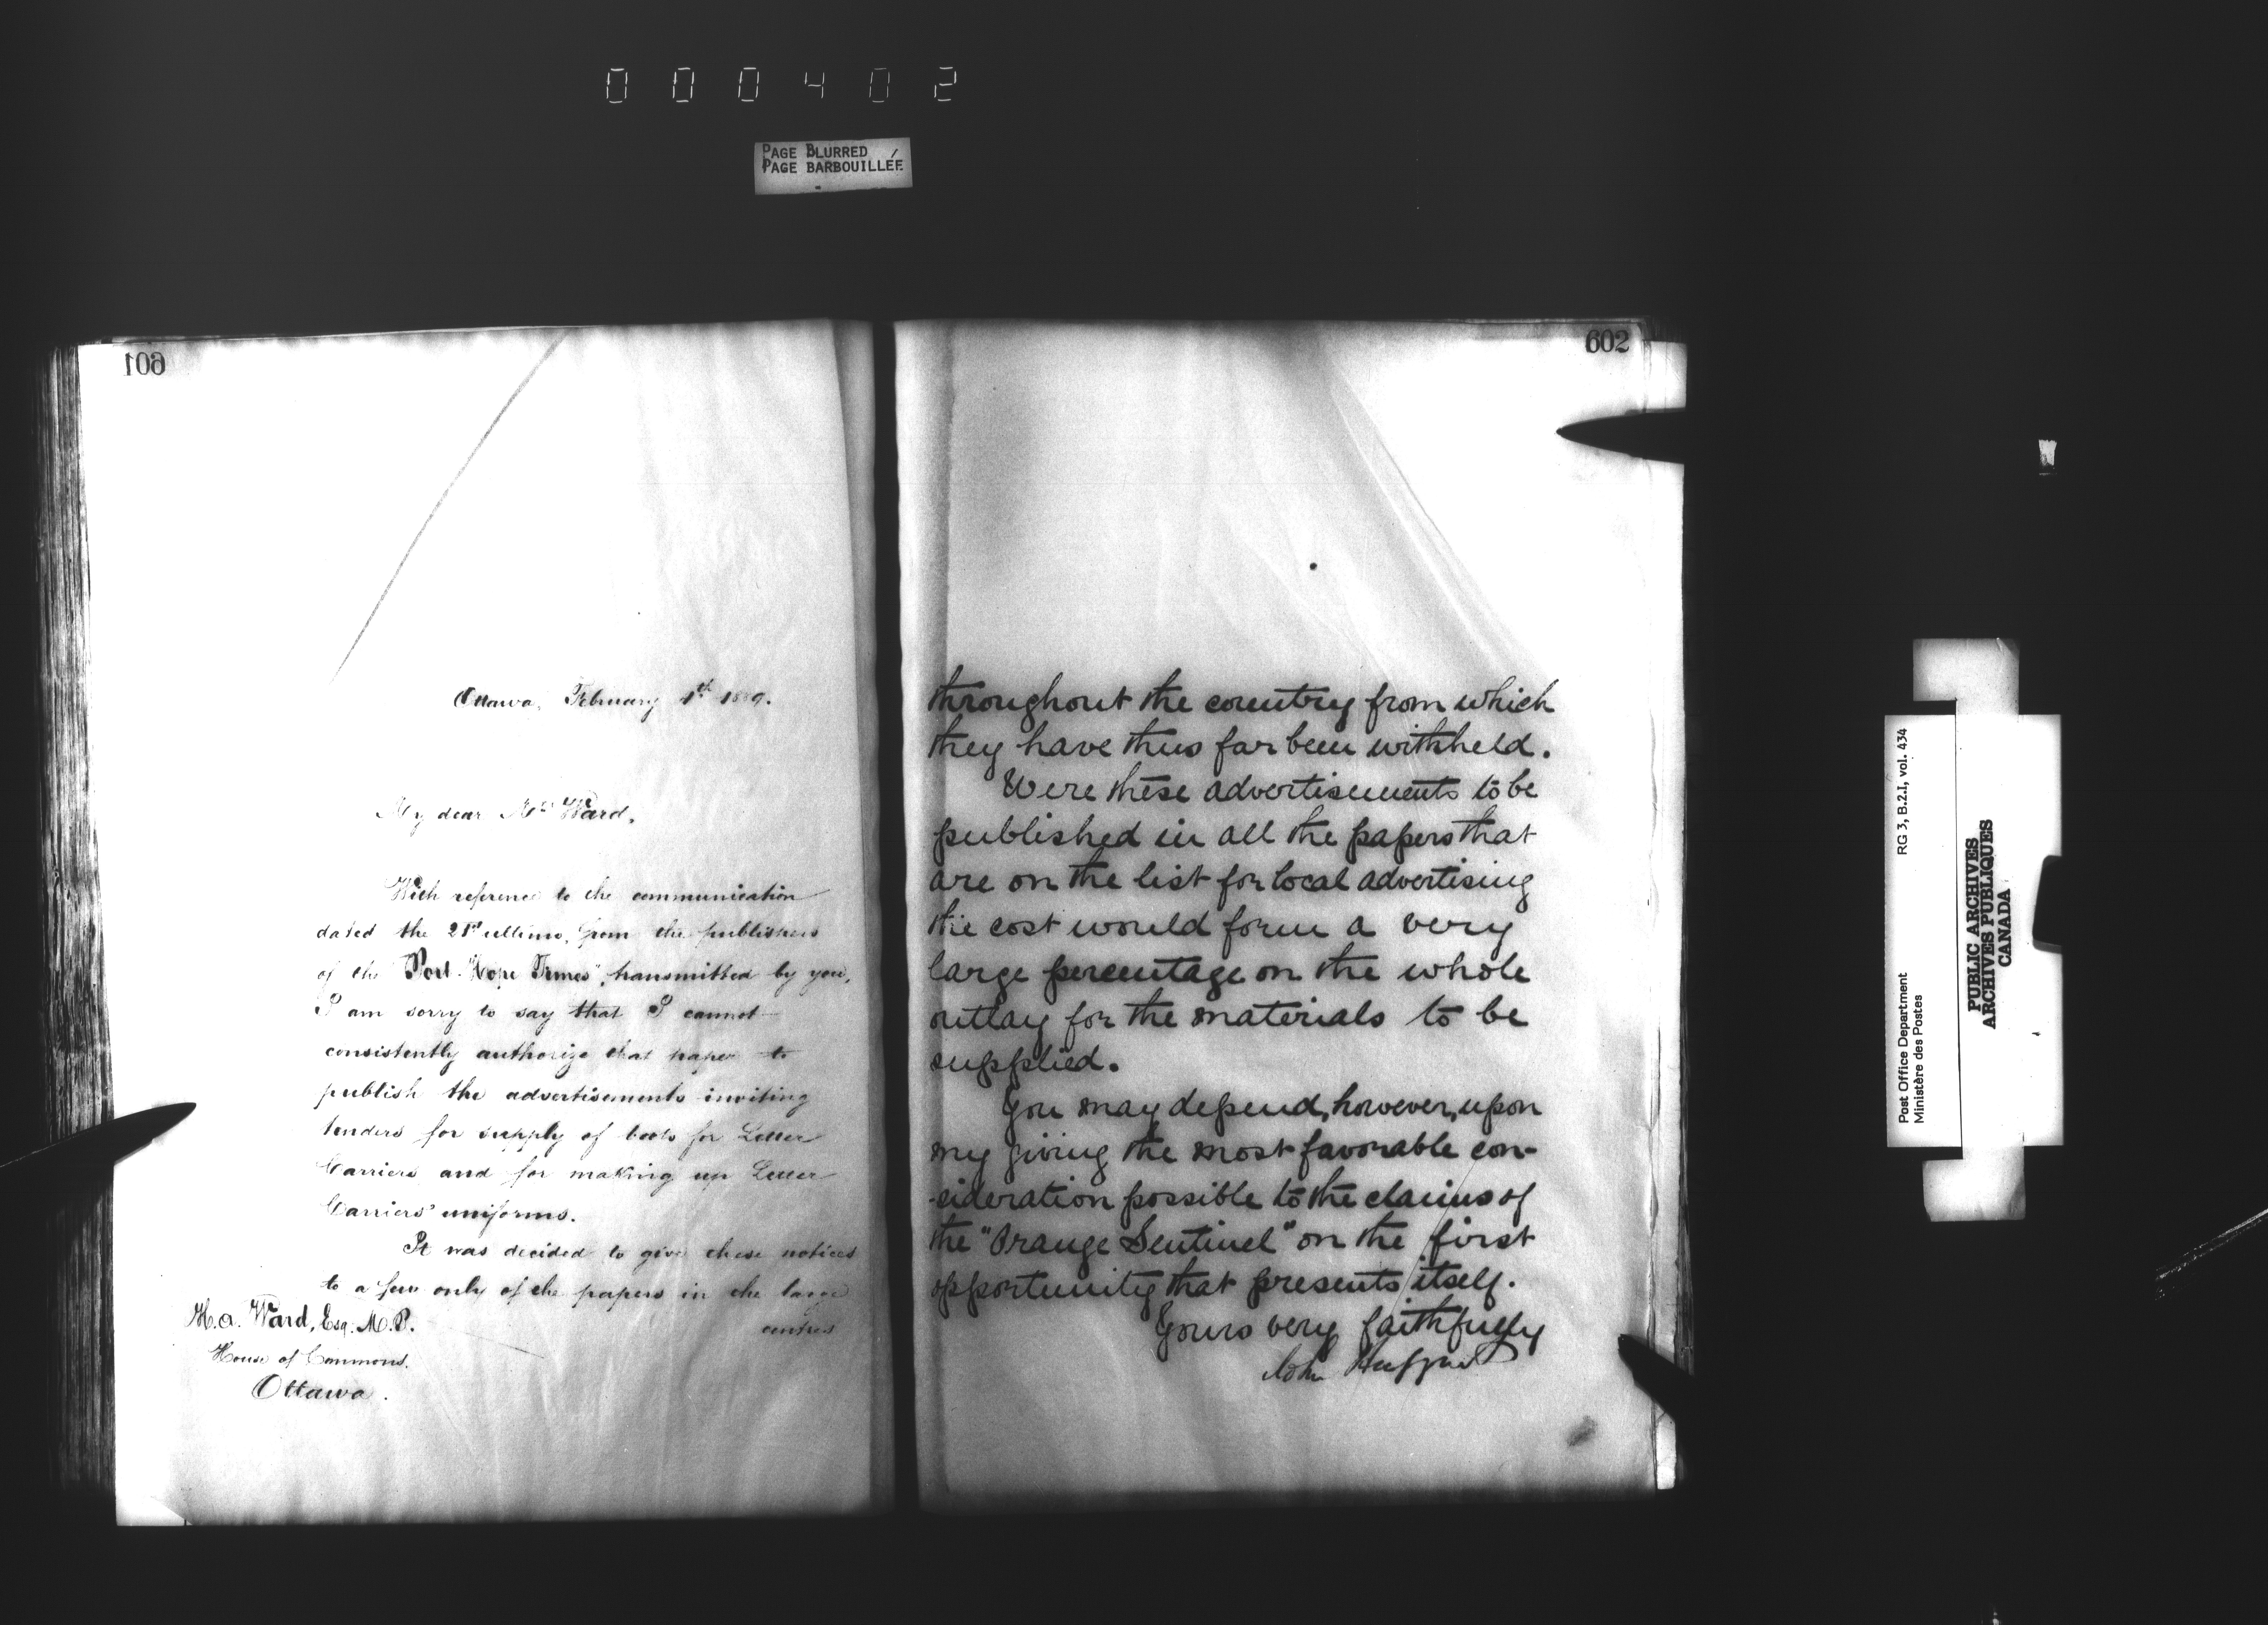 000402
PAGE BLURRED
PAGE BARBOUILLÉE
601
Ottawa, February 1st 1889.
My dear Mr Ward,
With reference to the communication
dated the 21st ultimo, from the publishers
of the Port "Hope Times", transmitted by you,
I am sorry to say that I cannot
consistently authorize that paper to
publish the advertisements inviting
tenders for supply of boots for Letter
Carriers and for making up Letter
Carriers' uniforms.
It was decided to give these notices
to a few only of the papers in the large
centres
H.A. Ward, Esq. M.P.
House of Commons.
Ottawa.
602
throughout the country from which
they have thus far been withheld.
Were these advertisements to be
published in all the papers that
are on the list for local advertising
the cost would form a very
large percentage on the whole
outlay for the materials to be
supplied.
You may depend, however, upon
my giving the most favorable con-
-sideration possible to the claims of
the "Orange Sentinel" on the first
opportunity that presents itself.
Yours very faithfully
John Haggart
Post Office Department
Ministère des Postes
RG 3, B.2.I, vol. 434
PUBLIC ARCHIVES
ARCHIVES PUBLIQUES
CANADA